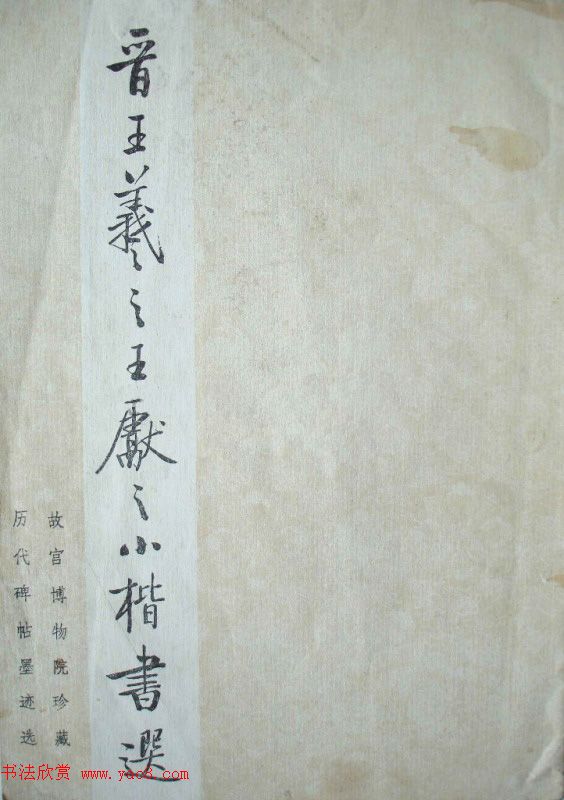 晋王羲之王獻之小楷書選
故宫博物院珍藏
历代碑帖墨迹选
书法欣赏 www.yac8.com